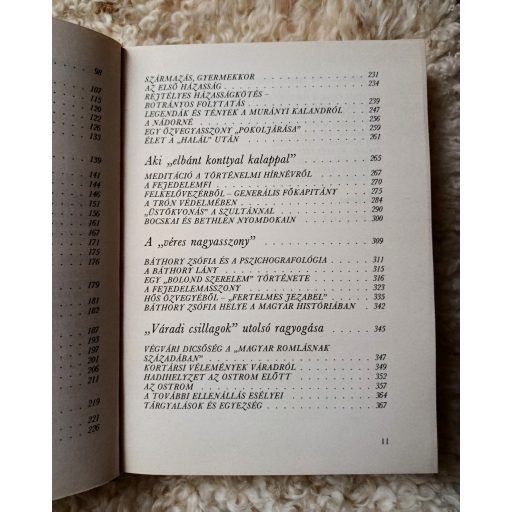 98
107
115
120
126
133
139
141
144
151
158
165
171
176
179
181
182
187
193
197
201
206
211
219
221
226
SZÁRMAZÁS, GYERMEKKOR . . . 231
AZ ELSŐ HÁZASSÁG . . . 234
REJTÉLYES HÁZASSÁGKÖTÉS –
BOTRÁNYOS FOLYTATÁS . . . 239
LEGENDÁK ÉS TÉNYEK A MURÁNYI KALANDRÓL . . . 247
A NÁDORNÉ . . . 256
EGY ÖZVEGYASSZONY „POKOLJÁRÁSA” . . . 259
ÉLET A „HALÁL” UTÁN . . . 261
Aki „elbánt konttyal kalappal” . . . 265
MEDITÁCIÓ A TÖRTÉNELMI HÍRNÉVRŐL . . . 267
A FEJEDELEMFI . . . 270
FELKELŐVEZÉRBŐL – GENERÁLIS FŐKAPITÁNY . . . 275
A TRÓN VÉDELMÉBEN . . . 284
„ÜSTÖKVONÁS” A SZULTÁNNAL . . . 290
BOCSKAI ÉS BETHLEN NYOMDOKAIN . . . 300
A „véres nagyasszony” . . . 309
BÁTHORY ZSÓFIA ÉS A PSZICHOGRAFOLÓGIA . . . 311
A BÁTHORY LÁNY . . . 315
EGY „BOLOND SZERELEM” TÖRTÉNETE . . . 316
A FEJEDELEMASSZONY . . . 323
HŐS ÖZVEGYÉBŐL – „FERTELMES JEZABEL” . . . 335
BÁTHORY ZSÓFIA HELYE A MAGYAR HISTÓRIÁBAN . . . 342
„Váradi csillagok” utolsó ragyogása . . . 345
VÉGVÁRI DICSŐSÉG A „MAGYAR ROMLÁSNAK
SZÁZADÁBAN” . . . 347
KORTÁRSI VÉLEMÉNYEK VÁRADRÓL . . . 349
HADIHELYZET AZ OSTROM ELŐTT . . . 352
AZ OSTROM . . . 357
A TOVÁBBI ELLENÁLLÁS ESÉLYEI . . . 364
TÁRGYALÁSOK ÉS EGYEZSÉG . . . 367
11